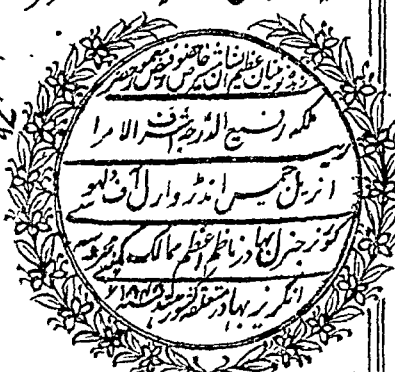 زبدهٔ نوئینان عظیم الشان مشیر خاص حضور فیض معمور حضرت
ملکه رفیع الدرجه اشرف الامرا
انریبل جمیس اندرو ارل آف دلهوسی
گورنر جنرل بهادر ناظم اعظم ممالک
انگریز بهادر متعلقه کشور هند سنه ۱۸۴۸